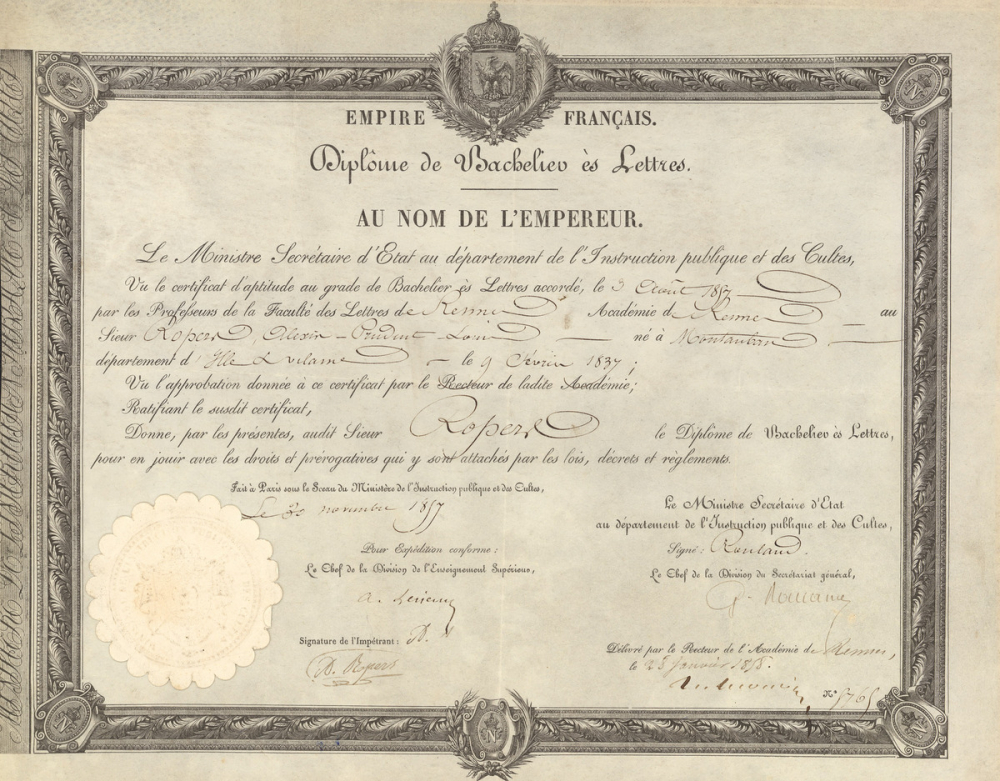 EMPIRE FRANÇAIS.
Diplôme de Bachelier ès Lettres.
AU NOM DE L'EMPEREUR.
Le Ministre Secrétaire d'Etat au département de l'Instruction publique et des Cultes,
Vu le certificat d'aptitude au grade de Bachelier ès Lettres accordé, le 3 Août 1857
par les Professeurs de la Faculté des Lettres de Rennes Académie de Rennes au
Sieur Ropert, Alexis - Prudent - Louis né à Montauban
département d'Ille & vilaine le 9 Février 1837;
Vu l'approbation donnée à ce certificat par le Recteur de ladite Académie;
Ratifiant le susdit certificat,
Donne, par les présentes, audit Sieur Ropert le Diplôme de Bachelier ès Lettres,
pour en jouir avec les droits et prérogatives qui y sont attachés par les lois, décrets et règlements.
Fait à Paris sous le Sceau du Ministère de l'Instruction publique et des Cultes,
Le 30 novembre 1857
Pour Expédition conforme:
Le Chef de la Division de l'Enseignement Supérieur,
Signature de l'Impétrant:
A. Ropert
Le Ministre Secrétaire d'Etat
au département de l'Instruction publique et des Cultes,
Signé: Rouland.
Le Chef de la Division du Secrétariat général,
Délivré par le Recteur de l'Académie de Rennes,
le 25 Janvier 1858.
N° 5765
N
N
N
N
N